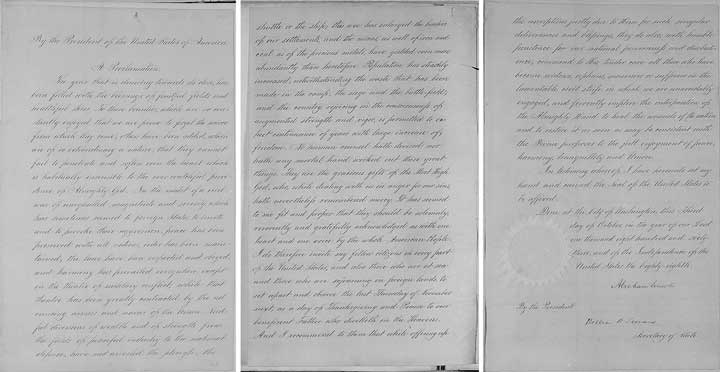 By the President of the United States of America.
A Proclamation.
The year that is drawing towards its close, has
been filled with the blessings of fruitful fields and
healthful skies. To these bounties, which are so con-
stantly enjoyed that we are prone to forget the source
from which they come, others have been added, which
are of so extraordinary a nature, that they cannot
fail to penetrate and soften even the heart which
is habitually insensible to the ever watchful provi-
dence of Almighty God. In the midst of a civil
war of unequalled magnitude and severity, which
has sometimes seemed to foreign States to invite
and to provoke their aggression, peace has been
preserved with all nations, order has been main-
tained, the laws have been respected and obeyed,
and harmony has prevailed everywhere except
in the theatre of military conflict; while that
theatre has been greatly contracted by the ad-
vancing armies and navies of the Union. Need-
ful diversions of wealth and of strength from
the fields of peaceful industry to the national
defence, have not arrested the plough, the
shuttle or the ship; the axe has enlarged the borders
of our settlements, and the mines, as well of iron and
coal as of the precious metals, have yielded even more
abundantly than heretofore. Population has steadily
increased, notwithstanding the waste that has been
made in the camp, the siege and the battle-field;
and the country, rejoicing in the consciousness of
augmented strength and vigor, is permitted to ex-
pect continuance of years with large increase of
freedom. No human counsel hath devised nor
hath any mortal hand worked out these great
things. They are the gracious gifts of the Most High
God, who, while dealing with us in anger for our sins,
hath nevertheless remembered mercy. It has seemed
to me fit and proper that they should be solemnly,
reverently and gratefully acknowledged as with one
heart and one voice by the whole American People.
I do therefore invite my fellow citizens in every part
of the United States, and also those who are at sea
and those who are sojourning in foreign lands, to
set apart and observe the last Thursday of November
next, as a day of Thanksgiving and Praise to our
beneficent Father who dwelleth in the Heavens.
And I recommend to them that while offering up
the ascriptions justly due to Him for such singular
deliverances and blessings, they do also, with humble
penitence for our national perverseness and disobedi-
ence, commend to His tender care all those who have
become widows, orphans, mourners or sufferers in the
lamentable civil strife in which we are unavoidably
engaged, and fervently implore the interposition of
the Almighty Hand to heal the wounds of the nation
and to restore it as soon as may be consistent with
the Divine purposes to the full enjoyment of peace,
harmony, tranquillity and Union.
In testimony whereof, I have hereunto set my
hand and caused the Seal of the United States to
be affixed.
Done at the City of Washington, this Third
day of October, in the year of our Lord
one thousand eight hundred and sixty-
three, and of the Independence of the
United States the Eighty-eighth.
Abraham Lincoln
By the President:
William H. Seward
Secretary of State